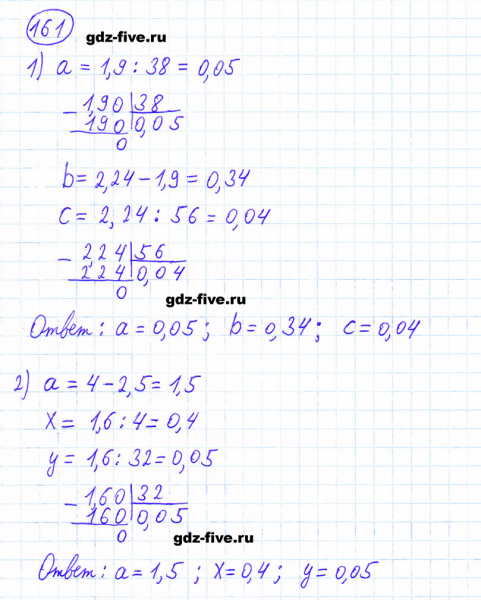 161 gdz-five.ru
1) a = 1,9 : 38 = 0,05
- 1,90 | 38
190 | 0,05
0
b = 2,24 - 1,9 = 0,34
c = 2,24 : 56 = 0,04
- 2,24 | 56
2 24 | 0,04
0
gdz-five.ru
Ответ: a = 0,05; b = 0,34; c = 0,04
2) a = 4 - 2,5 = 1,5
x = 1,6 : 4 = 0,4
y = 1,6 : 32 = 0,05
- 1,60 | 32
160 | 0,05
0
gdz-five.ru
Ответ: a = 1,5; x = 0,4; y = 0,05